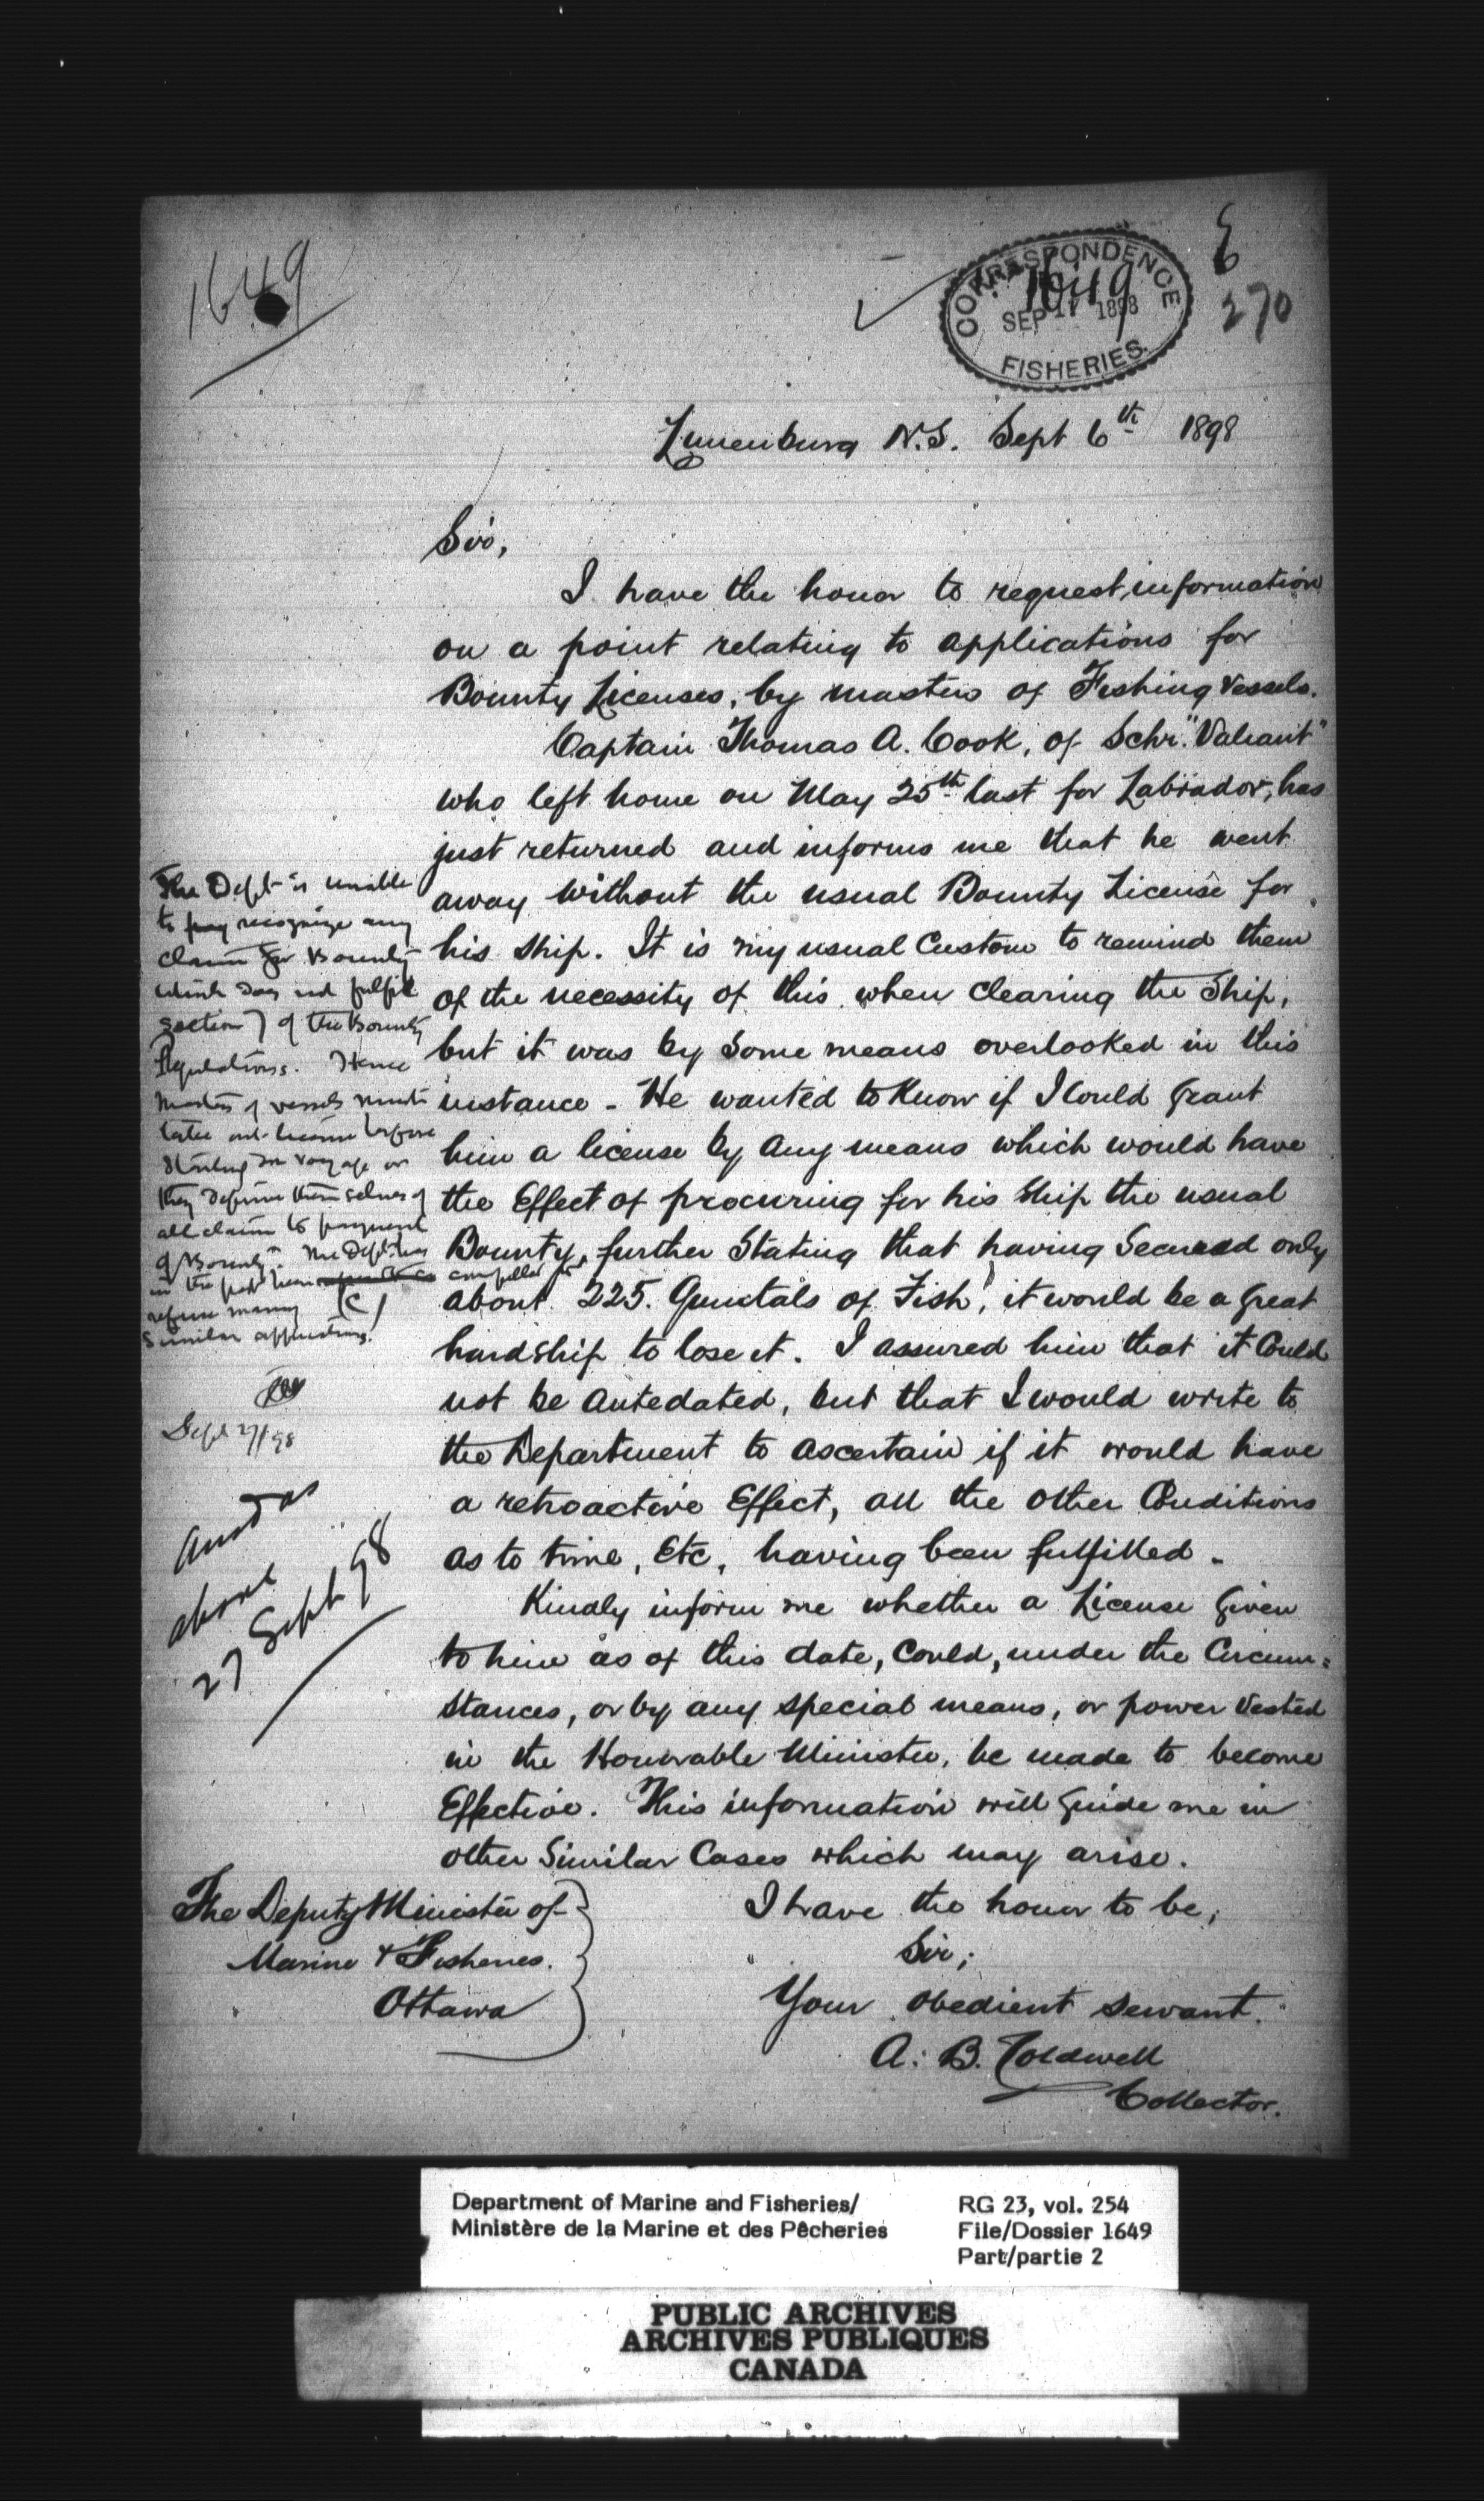 1649
CORRESPONDENCE
1649
SEP 17 1898
FISHERIES.
270
Lunenburg N.S. Sept 6th 1898
Sir,
I have the honor to request information
on a point relating to applications for
Bounty Licenses, by masters of Fishing Vessels.
Captain Thomas A. Cook, of Schr. "Valiant"
who left home on May 25th last for Labrador, has
just returned and informs me that he went
away without the usual Bounty License for
his ship. It is my usual Custom to remind them
of the necessity of this when Clearing the Ship,
but it was by some means overlooked in this
instance - He wanted to Know if I Could Grant
him a license by any means which would have
the Effect of procuring for his Ship the usual
Bounty, further Stating that having Secured only
about 225. Quintals of Fish, it would be a Great
hardship to lose it. I assured him that it Could
not be antedated, but that I would write to
the Department to ascertain if it would have
a retroactive Effect, all the other Conditions
as to time, Etc, having been fulfilled -
Kindly inform me whether a License Given
to him as of this date, Could, under the Circum=
stances, or by any special means, or power Vested
in the Honorable Minister, be made to become
Effective. This information will Guide me in
other Similar Cases which may arise.
I have the honor to be,
Sir;
Your obedient servant.
A. B. Coldwell
Collector.
The Deputy Minister of
Marine & Fisheries.
Ottawa
The Dept is unable
to pay recognize any
claim for Bounty
which does not fulfil
section 7 of the Bounty
Regulations. Hence
masters of vessels must
take out license before
starting on voyage or
they deprive themselves of
all claim to payment
of Bounty. The Dept. has
in the past been compelled to
refuse many (C)
similar applications.
Sept 27/98
Ansd as
above
27 Sept 98
Department of Marine and Fisheries/
Ministère de la Marine et des Pêcheries
RG 23, vol. 254
File/Dossier 1649
Part/partie 2
PUBLIC ARCHIVES
ARCHIVES PUBLIQUES
CANADA